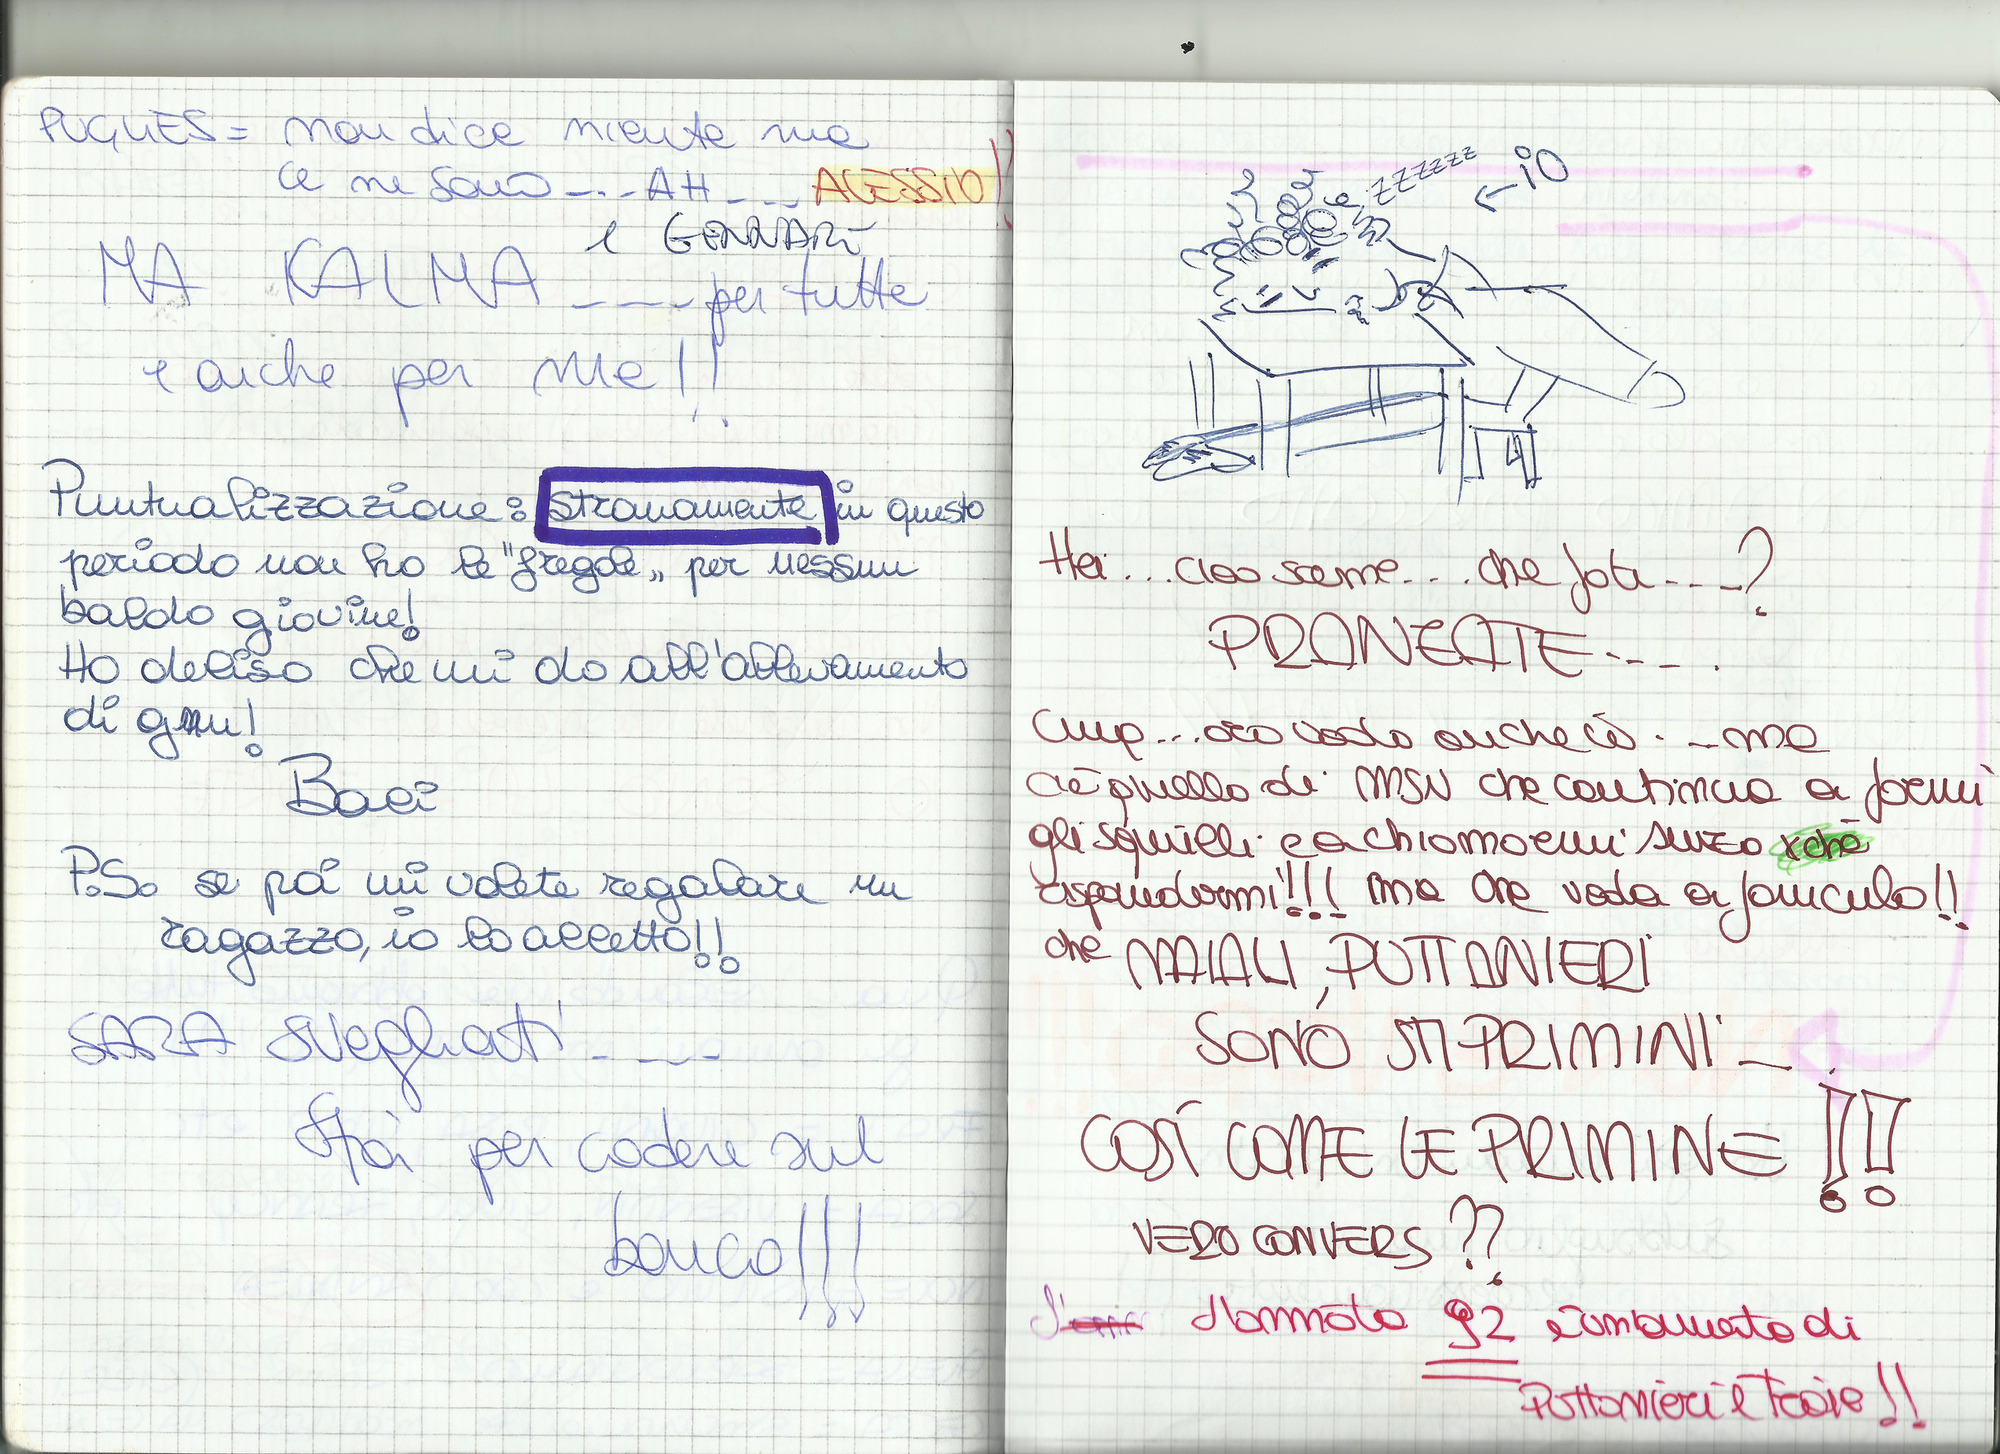 PUGUES = non dice niente ma
ce ne sono --- AH --- ALESSIO!!
e GENNARI
MA KALMA ---- per tutte
e anche per me!!
Puntualizzazione: stranamente in questo
periodo non ho le "fregole" per nessun
baldo giovine!
Ho deciso che mi do all'allevamento
di gnu!
Baci
P.S. se poi mi volete regalare un
ragazzo, io lo accetto!!
SARA svegliati ----
Stai per cadere sul
banco!!!
zzzzzz ← io
Hei... ciao sceme... che fate ---?
PRANZATE ----.
Cmq... ora vado anche io .--ma
c'è quello di MSN che continua a farmi
gli squilli e a chiamarmi senza xchè
rispondermi!!! ma che vada a fanculo!!
che MAIALI, PUTTANIERI
SONO STI PRIMINI --.
COSÌ COME LE PRIMINE!!
VERO CONVERS??
L'annata 92 è un'annata di
Puttanieri e Troie!!